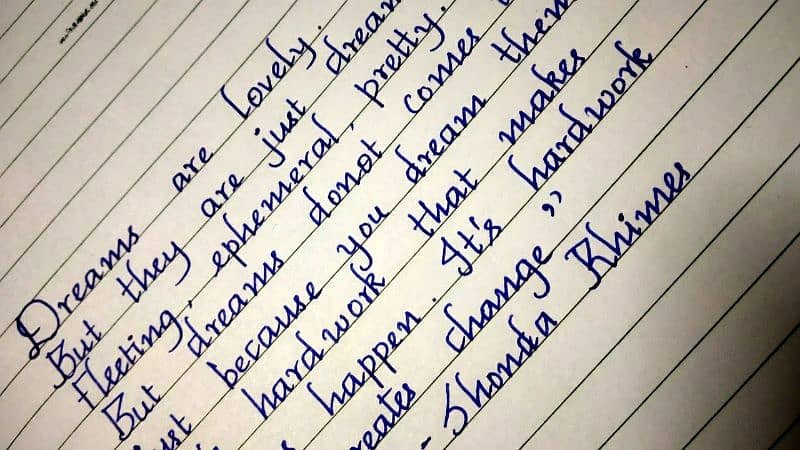 Dreams are lovely.
But they are just dream
Fleeting, ephemeral, pretty.
But dreams donot comes
just because you dream them
hardwork that makes
happen. It's hardwork
creates change”
- Shonda Rhimes